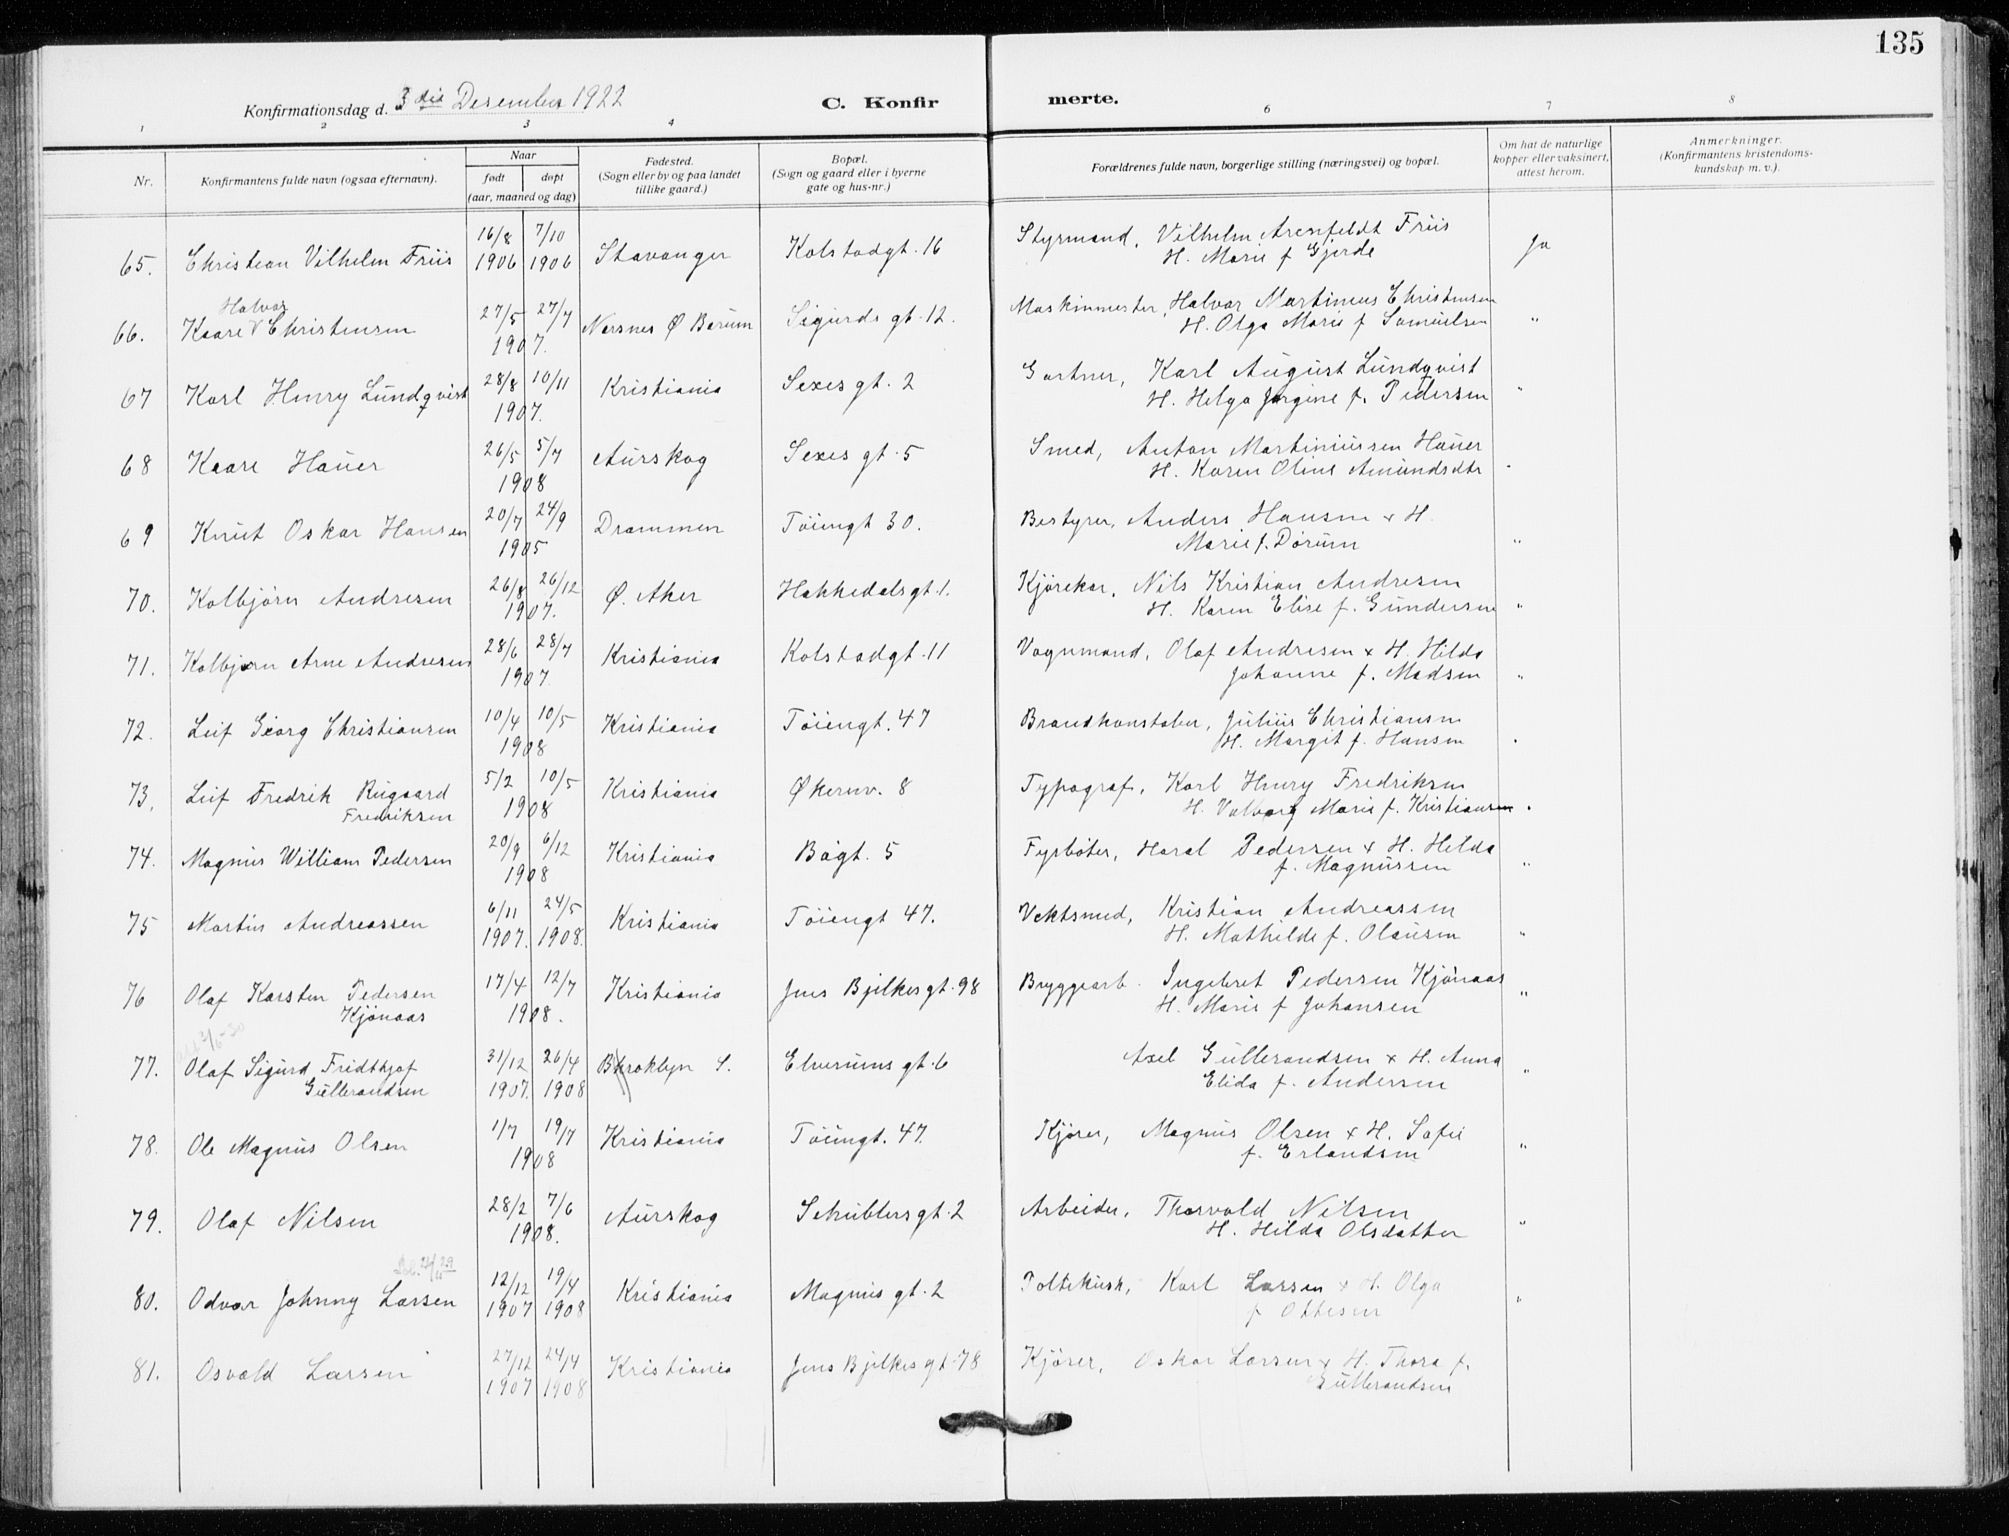 135
Konfirmationsdag d. 3die Desember 1922
C. Konfir merte.
1 2 3 4 6 7 8
Nr.
Konfirmantens fulde navn (ogsaa efternavn).
Naar
født døpt
(aar, maaned og dag)
Fødested.
(Sogn eller by og paa landet
tillike gaard.)
Bopæl.
(Sogn og gaard eller i byerne
gate og hus-nr.)
Forældrenes fulde navn, borgerlige stilling (næringsvei) og bopæl.
Om hat de naturlige
kopper eller vaksinert,
attest herom.
Anmerkninger.
(Konfirmantens kristendoms-
kundskap m. v.).
65. Christian Vilhelm Friis 16/8 1906 7/10 1906 Stavanger Kolstadgt. 16 Styrmand, Vilhelm Arenfeldt Friis Ja
H. Marie f Gjerde
Halvar
66. Kaare V Christensen 27/5 27/7 Nersnes Ø Bærum Sigurds gt. 12. Maskinmester, Halvar Martinius Christensen "
1907. H. Olga Marie f Samuelsen
67 Karl Henry Lundqvist 28/8 10/11 Kristiania Sexes gt. 2 Gartner, Karl August Lundqvist "
1907. H. Helga Jørgine f. Pedersen
68 Kaare Hauer 26/5 5/7 Aurskog Sexes gt. 5 Smed, Anton Martiniussen Hauer "
1908 H. Karen Oline Amundsdtr
69 Knut Oskar Hansen 20/7 24/9 Drammen Töiengt 30. Bestyrer, Anders Hansen & H.
1905 Marie f. Dørum "
70. Kolbjörn Andresen 26/8 26/12 Ø. Aker Hakkedalsgt. 1. Kjörekar, Nils Kristian Andresen
1907. H. Karen Elise f. Gundersen "
71. Kolbjørn Arne Andresen 28/6 28/7 Kristiania Kolstadgt. 11 Vognmand, Olaf Andresen & H. Hilda
1907 Johanne f. Madsen "
72. Leif Georg Christiansen 10/4 10/5 Kristiania Töiengt. 47 Brandkonstabel, Julius Christiansen
1908 H. Margit f. Hansen "
73. Leif Fredrik Rugaard 5/2 10/5 Kristiania Økernv. 8 Typograf, Karl Henry Fredriksen
Fredriksen 1908 H. Valborg Marie f. Kristiansen "
74. Magnus William Pedersen 20/9 6/12 Kristiania Bögt. 5 Fyrböter, Haral Pedersen & H. Hilda
1908 f. Magnussen "
75 Martin Andreassen 6/11 1907. 24/5 1908. Kristiania Töiengt 47. Vektsmed, Kristian Andreassen
H. Mathilde f. Olausen "
76 Olaf Karsten Pedersen 17/4 12/7 Kristiania Jens Bjelkesgt. 98 Bryggearb. Ingebret Pedersen Kjönaas
Kjönaas 1908. H. Marie f Johansen "
2/6-30
77. Olaf Sigurd Fridthjof 31/12 1907. 26/4 1908 Brroklyn S. Elverums gt. 6 Axel Gullerandsen & H. Anna
Gullerandsen Elida f. Andersen "
78. Ole Magnus Olsen 1/7 19/7 Kristiania Töiengt. 47. Kjörer, Magnus Olsen & H. Sofie
1908 f. Erlandsen "
79. Olaf Nilsen 28/2 7/6 Aurskog Schüblersgt. 2 Arbeider, Thorvald Nilsen
1908. H. Hilda Olsdatter "
80. Odvar Johnny Larsen 12/12 1907 19/4 1908 Kristiania Magnus gt. 2 Politikusk, Karl Larsen & H. Olga
f Ottesen "
81. Osvald Larsen 27/12 1907 24/4 1908 Kristiania Jens Bjelkes gt. 78 Kjörer, Oskar Larsen & H. Thora f.
Gullerandsen